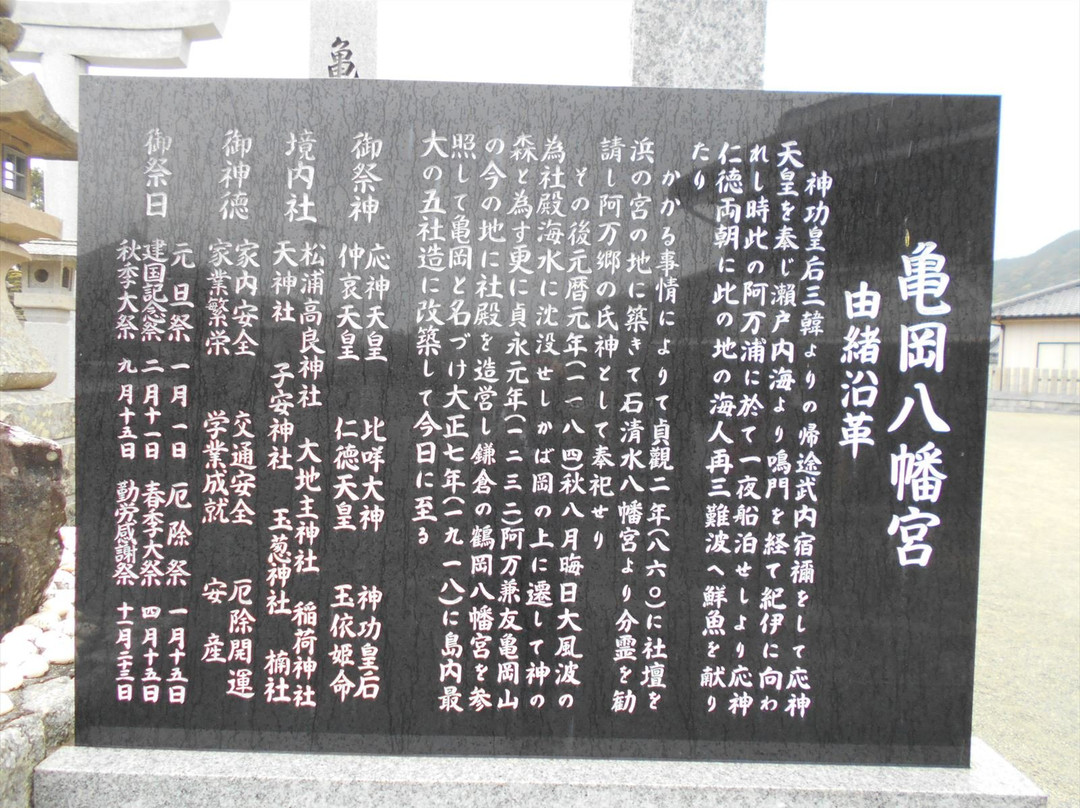 亀
亀岡八幡宮
由緒沿革
神功皇后三韓よりの帰途武内宿禰をして応神
天皇を奉じ瀬戸内海より鳴門を経て紀伊に向わ
れし時此の阿万浦に於て一夜船泊せしより応神
仁徳両朝に此の地の海人再三難波へ鮮魚を献り
たり
かかる事情によりて貞観二年(八六〇)に社壇を
浜の宮の地に築きて石清水八幡宮より分霊を勧
請し阿万郷の氏神として奉祀せり
その後元暦元年(一一八四)秋八月晦日大風波の
為社殿海水に沈没せしかば岡の上に遷して神の
森と為す更に貞永元年(一二三二)阿万兼友亀岡山
の今の地に社殿を造営し鎌倉の鶴岡八幡宮を参
照して亀岡と名づけ大正七年(一九一八)に島内最
大の五社造に改築して今日に至る
御祭神 応神天皇 比咩大神 神功皇后
仲哀天皇 仁徳天皇 玉依姫命
境内社 松浦高良神社 大地主神社 稲荷神社
天神社 子安神社 玉葱神社 楠社
御神徳 家内安全 交通安全 厄除開運
家業繁栄 学業成就 安産
御祭日 元旦祭 一月一日 厄除祭 一月十五日
建国記念祭 二月十一日 春季大祭 四月十五日
秋季大祭 九月十五日 勤労感謝祭 十一月二十三日